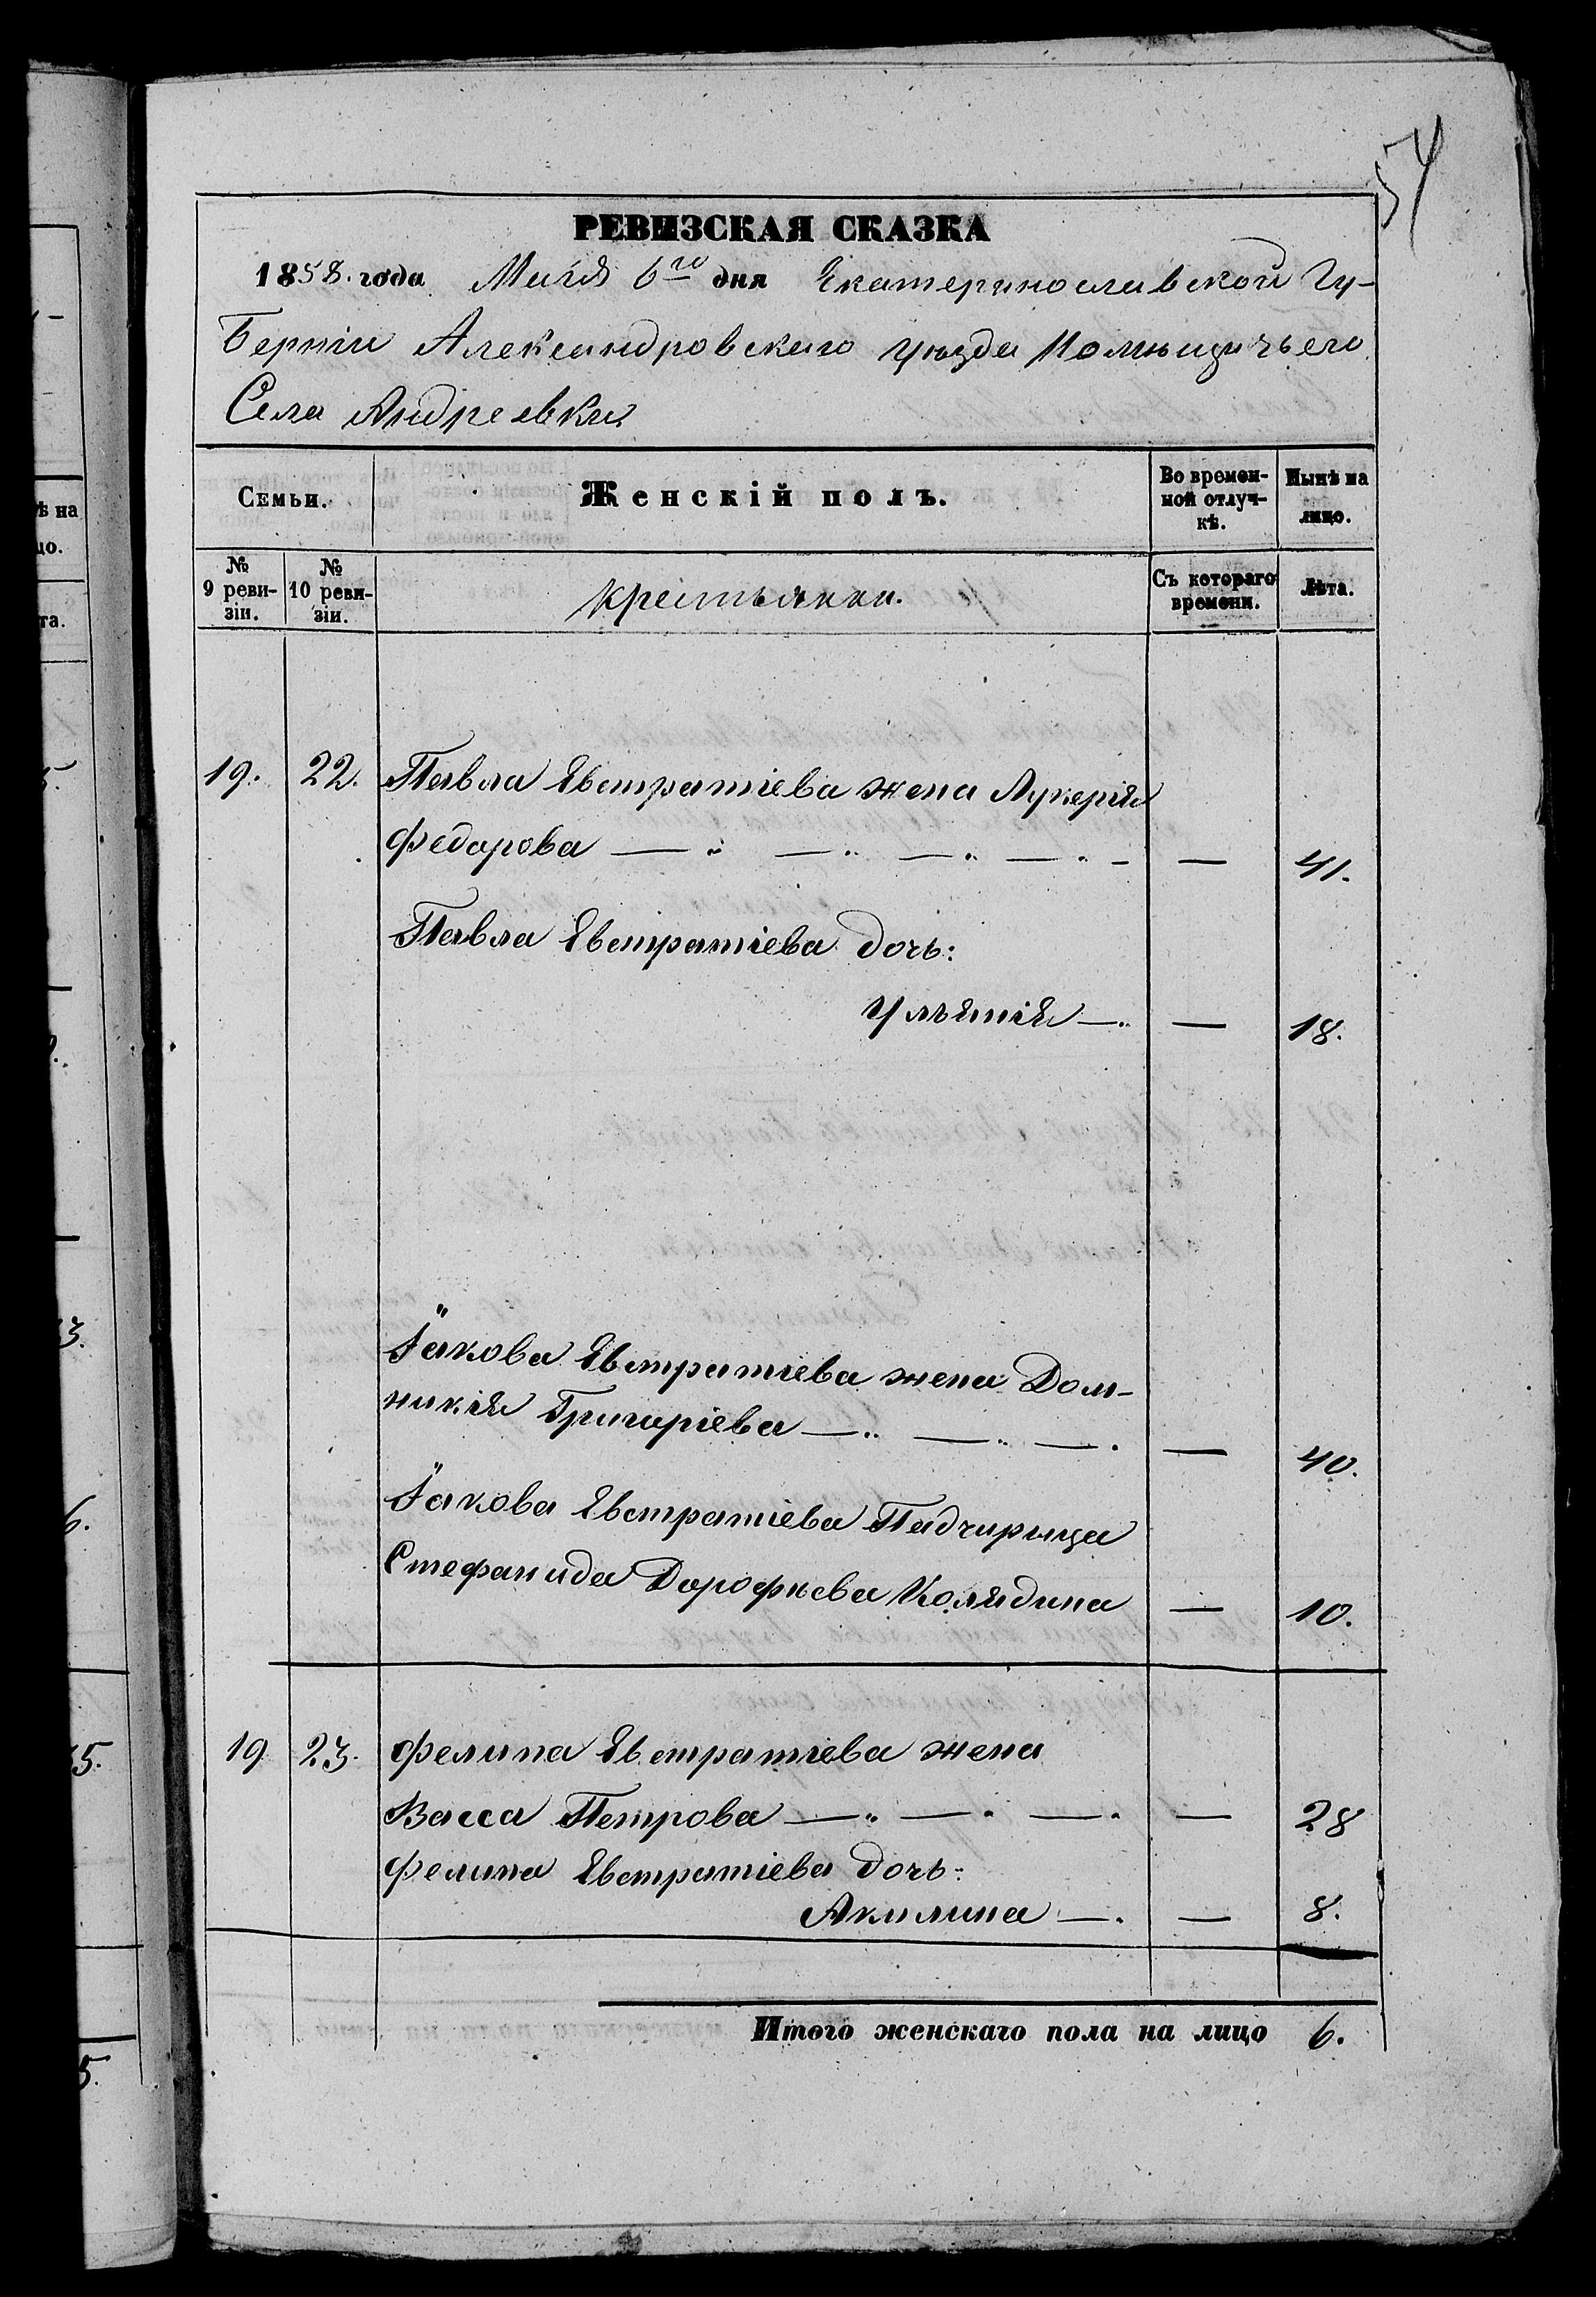 54
РЕВИЗСКАЯ СКАЗКА
1858. года Маія 6го дня Екатеринославской Гу-
берніи Александровскаго уѣзда Помѣщичьего
Села Андреевки
Семьи. Женскій полъ. Во времен-ной отлуч-кѣ. Нынѣ на лицо.
№ 9 реви-зіи. № 10 реви-зіи. крестьянки. Съ котораго времени. Лѣта.
19. 22. Павла Евстратіева жена Лукерія
Федорова — — 41.
Павла Евстратіева дочь:
Ульянія — — 18.
Іакова Евстратіева жена Дом-
никія Григоріева — — 40.
Іакова Евстратіева Падчирица
Стефанида Дорофѣева Колядина — 10.
19 23. Фелипа Евстратіева жена
Васса Петрова — — 28
Фелипа Евстратіева дочь:
Акилина — — 8.
Итого женскаго пола на лицо 6.